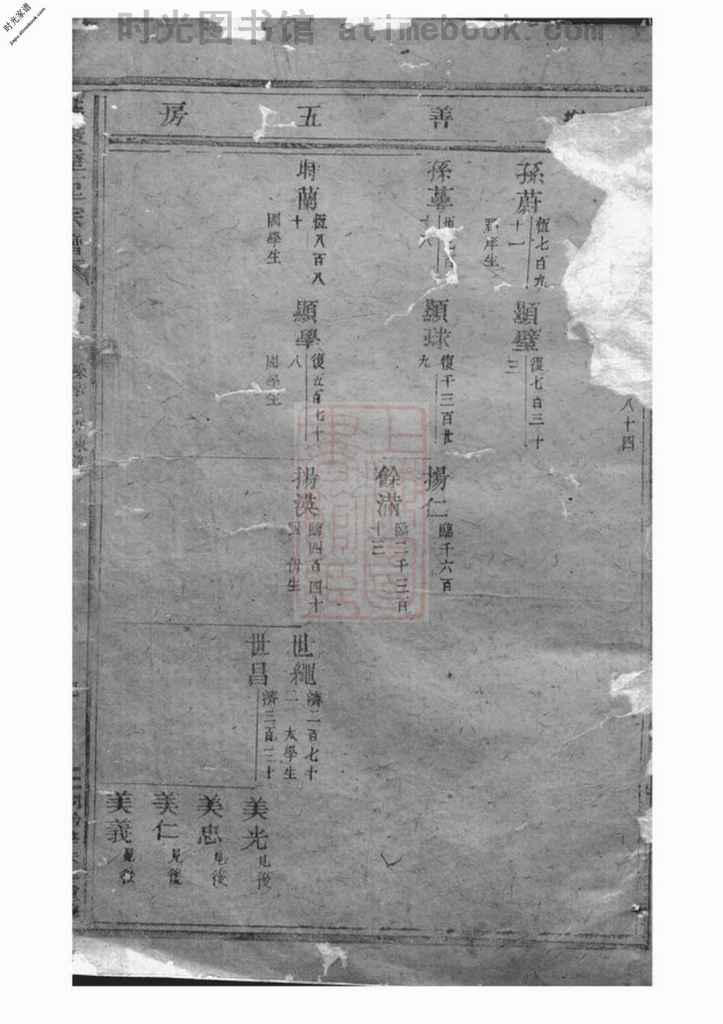 时光家谱
jiapu.atimebook.com
时光图书馆 atimebook.com
善五房
八十四
孫蔚 恆七百九十一
庠生
顯璧 復七百三十三
孫
顯球 復千三百廿九
揚仁 臨千六百
餘滿 臨二千三百十三
蘭 恆八百八十
國學生
顯學 復五百七十八
國學生
揚漢 臨四百四十
世繩 濟二百七十二 太學生
世昌 濟三百三十
美光 見後
美忠 見後
美仁 見後
美義 見後